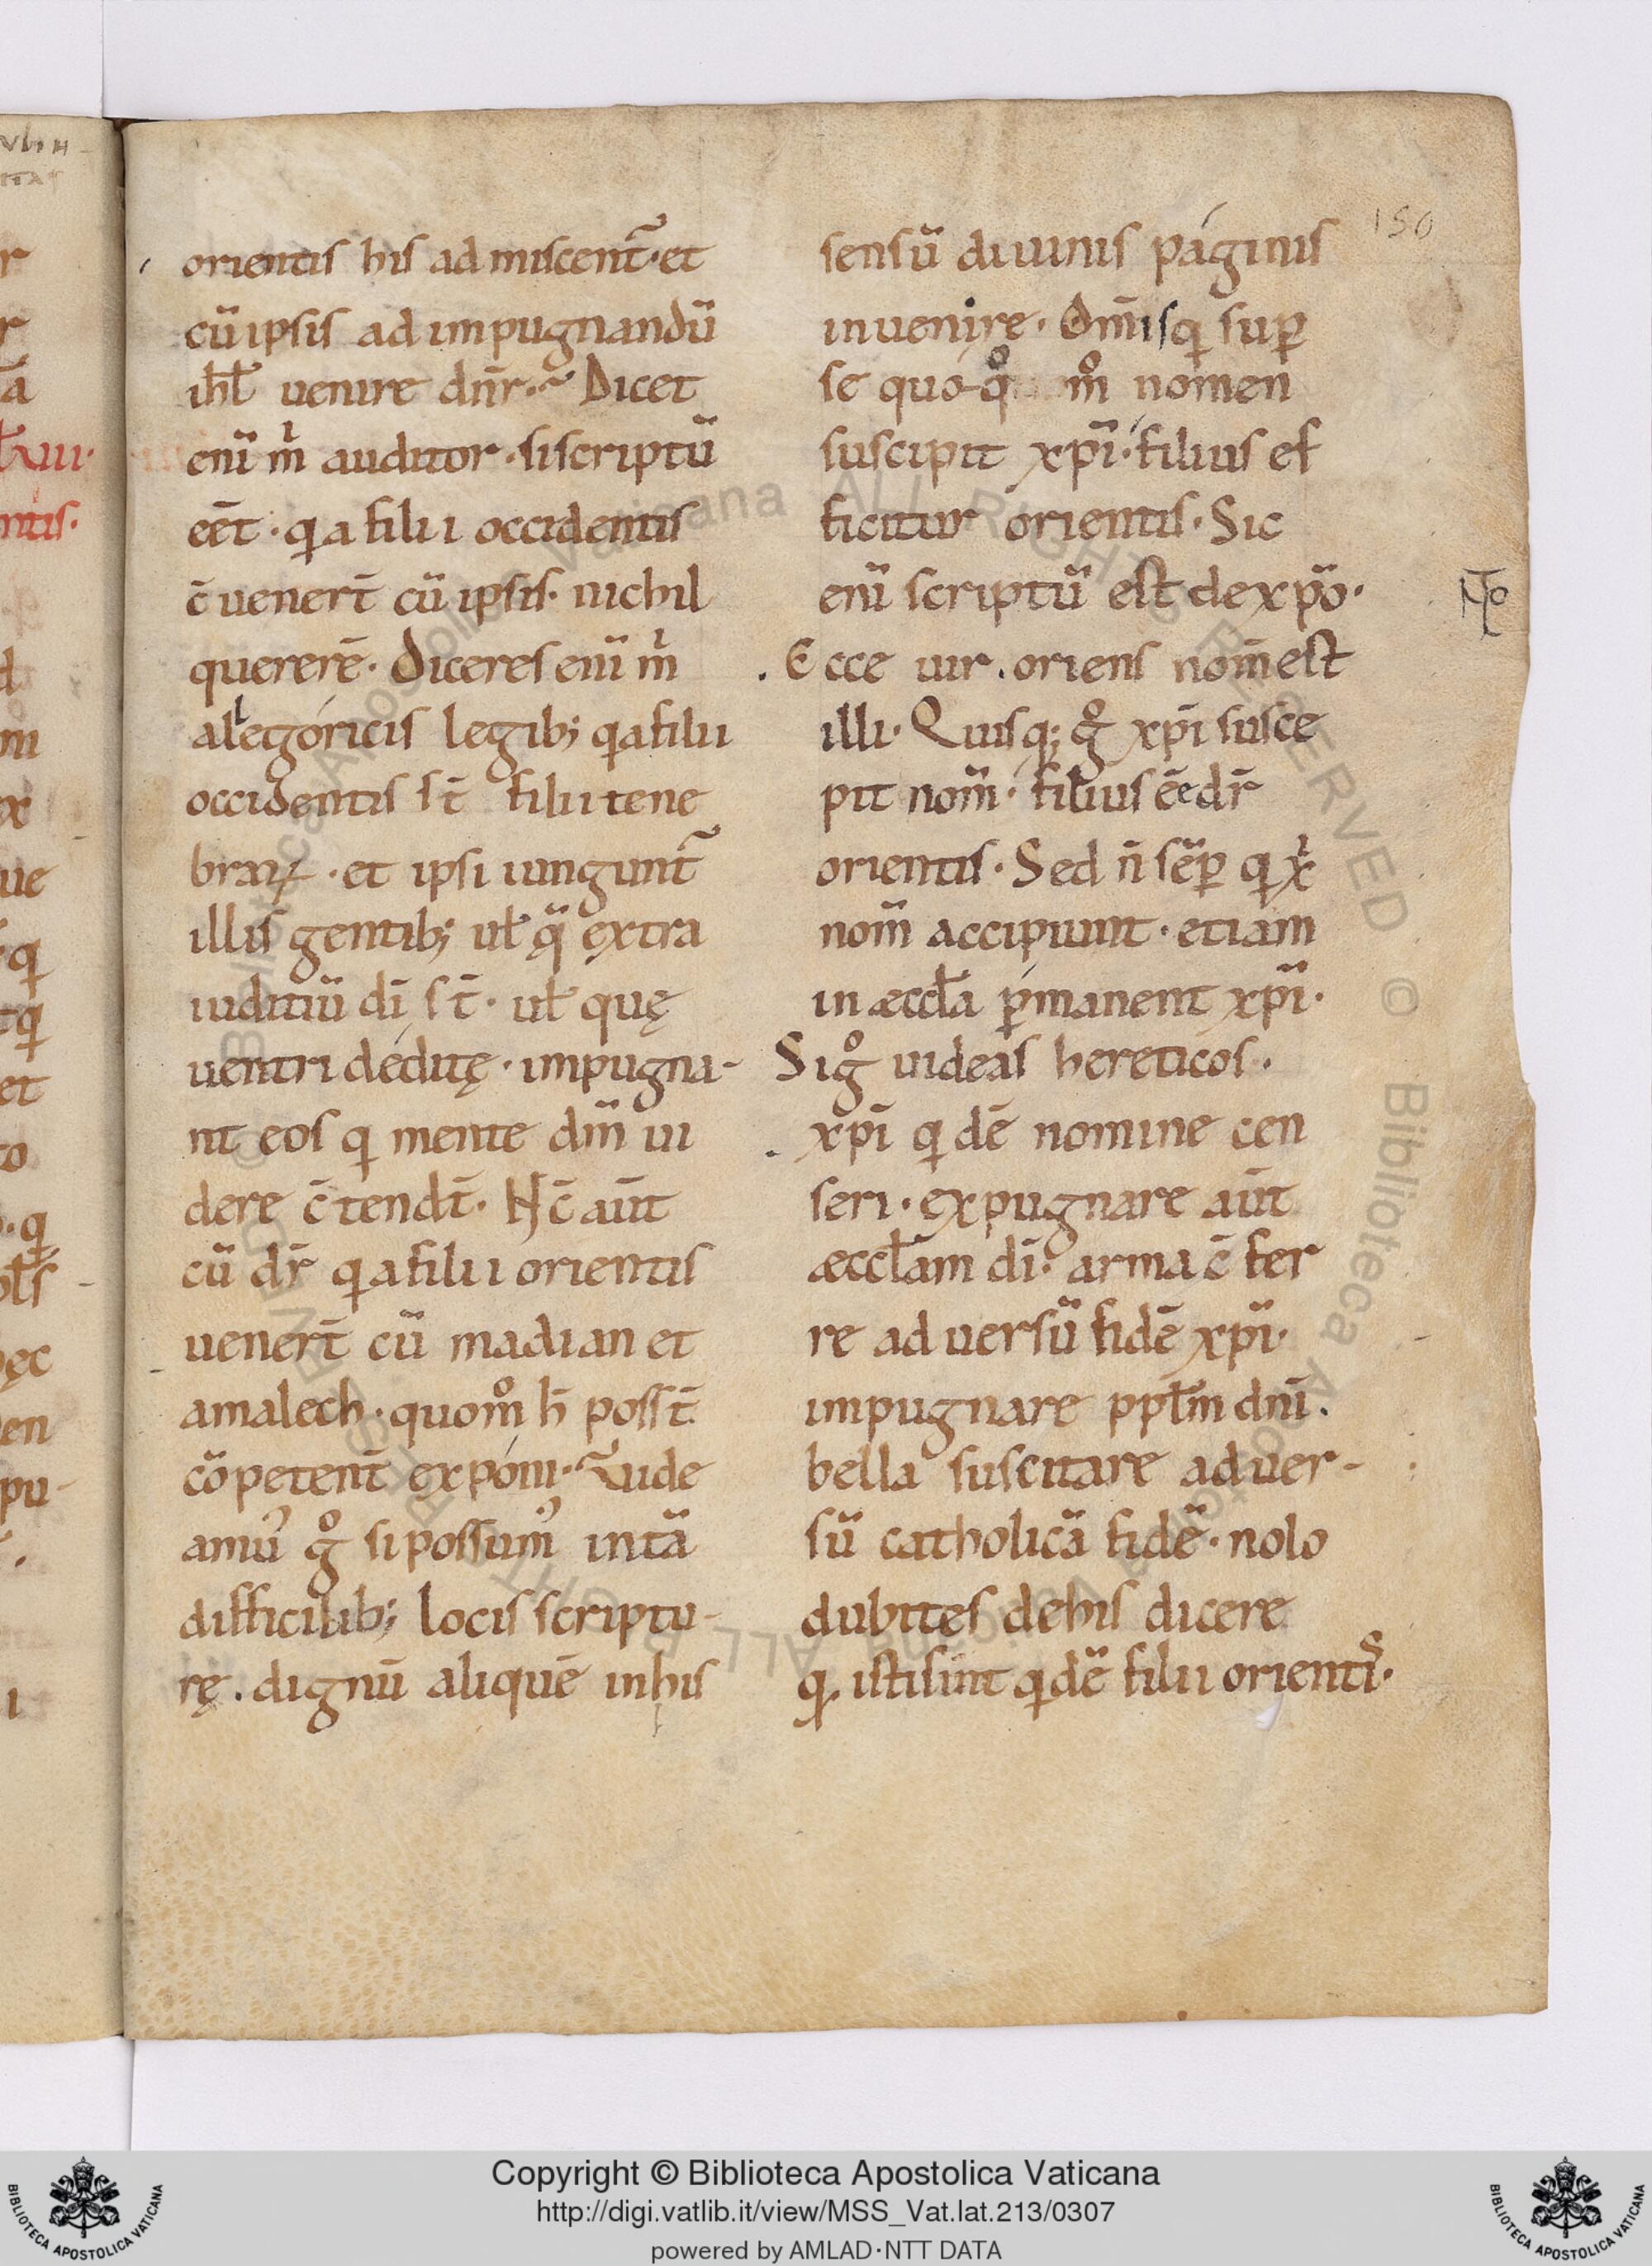 150
orientis his ad miscent᷑·et
cū ipsis ad impugnandū
ihƚ uenire dn̄r· Dicet
enī m̍ auditor·siscriptū
eēt·qia filii occidentis
c̄uenert̄ cū ipsis·nichil
querere̅·Diceres enī m̍
allegóricis legib; qia filii
occidentis st̄ filii tene
braꝝ·et ipsi iungunt᷑
illis gentib; uƚ q̄ extra
iuditiū dī st̄·uƚ quę
uentri déditę·impugna-
nt eos qi mente dm̄ ui
dere c̄tendt̄·Hc̄ aūt
cū dr̄ qia filii orientis
uenert̄ cū madian et
amalech·quom̊ h̄ posst̄
cōpetent̄ expóni·uide
amu᾽ g̊ si possum᾽ intā
difficilib; locis scriptu-
rę. dignū aliquē in his
sensū diuinis páginis
inuenire·Om̄isq sup̄
se quo-q̊ m̊ nomen
suscipit xp̄i·filius ef
ficitur orientis·Sic
enī scriptū est de xp̄o·
Ecce uir.oriens nom̄ est
illi·Quisq; g̊ xp̄i susce
pit nom̄·filius ēe dr̄
orientis·Sed n̄ sēp̄ qi x̍
nom̄ accipiunt·etiam
in æccƚa ꝑmanent xp̄i·
Si g̊ uideas hereticos·
xp̄i qidē nomine cen
seri·expugnare aūt
æccƚam dī·arma c̄fer
re aduersū fidē xp̄i·
impugnare ppƚm dn̄i.
bella suscitare aduer-
sū catholicā fidē·nolo
dubites dehis dicere
q. isti sint qidē filii orientiᷤ·
Copyright © Biblioteca Apostolica Vaticana
http://digi.vatlib.it/view/MSS_Vat.lat.213/0307
powered by AMLAD·NTT DATA